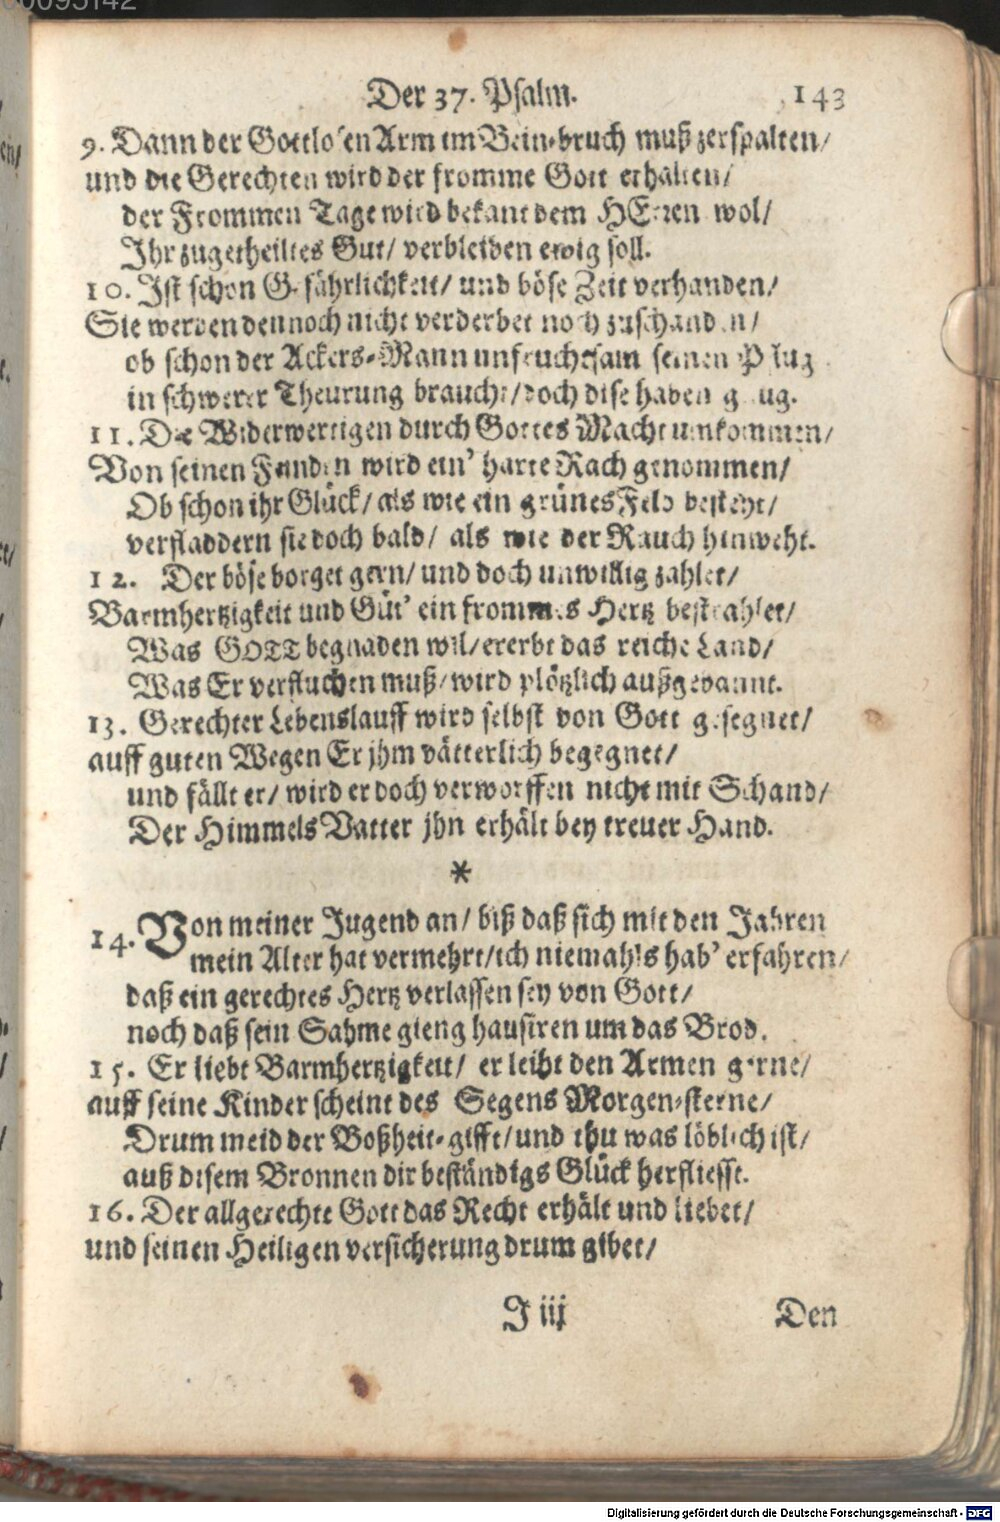 00095142
Der 37. Psalm. 143
9. Dann der Gottlosen Arm im Bein-bruch muß zerspalten/
und die Gerechten wird der fromme Gott erhalten/
der Frommen Tage wird bekant dem HErren wol/
Ihr zugetheiltes Gut/ verbleiben ewig soll.
10. Ist schon Gefährlichkeit/ und böse Zeit verhanden/
Sie werden dennoch nicht verderbet noch zuschanden/
ob schon der Ackers-Mann unfruchtsam seinen Pflug
in schwerer Theurung braucht/ doch dise haben genug.
11. Die Widerwertigen durch Gottes Macht umkommen/
Von seinen Feinden wird ein' harte Rach genommen/
Ob schon ihr Glück/ als wie ein grünes Feld besteht/
verfladdern sie doch bald/ als wie der Rauch hinweht.
12. Der böse borget gern/ und doch unwillig zahlet/
Barmhertzigkeit und Güt' ein frommes Hertz bestrahlet/
Was GOTT begnaden wil/ ererbt das reiche Land/
Was Er verfluchen muß/ wird plötzlich außgebannt.
13. Gerechter Lebenslauff wird selbst von Gott gesegnet/
auff guten Wegen Er jhm vätterlich begegnet/
und fällt er/ wird er doch verworffen nicht mit Schand/
Der Himmels Vatter jhn erhält bey treuer Hand.
*
14. Von meiner Jugend an/ biß daß sich mit den Jahren
mein Alter hat vermehrt/ ich niemahls hab' erfahren/
daß ein gerechtes Hertz verlassen sey von Gott/
noch daß sein Sahme gieng hausiren um das Brod.
15. Er liebt Barmhertzigkeit/ er leiht den Armen gerne/
auff seine Kinder scheint des Segens Morgen-sterne/
Drum meid der Boßheit-gifft/ und thu was löblich ist/
auß disem Bronnen dir beständigs Glück herfliesst.
16. Der allgerechte Gott das Recht erhält und liebet/
und seinen Heiligen versicherung drum gibet/
J iij Den
Digitalisierung gefördert durch die Deutsche Forschungsgemeinschaft - DFG